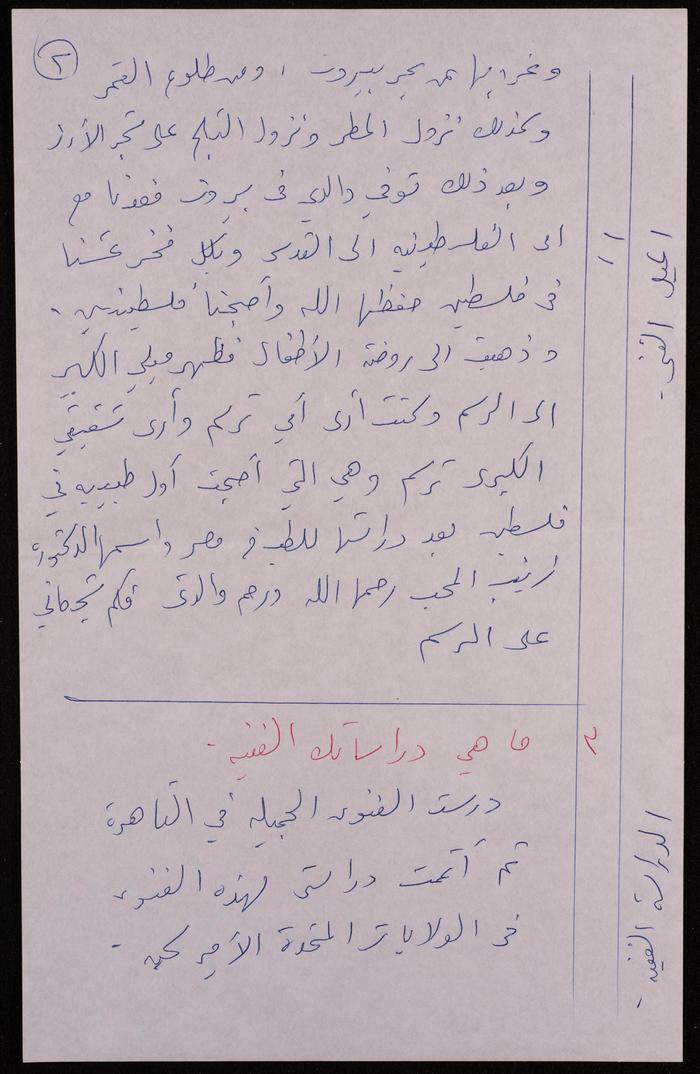 ٢
وغروبها عن بحر بيروت ، ومن طلوع القمر
وكذلك نزول المطر ونزول الثلج على شجر الأرز
وبعد ذلك توفي والدي في بيروت فعدنا مع
امى الفلسطينيه الى القدس وبكل فخر عشنا
فى فلسطين حفظها الله وأصبحنا فلسطينيين .
وذهبت الى روضة الأطفال فظهر ميلي الكبير
الى الرسم وكنت أرى أمي ترسم وأرى شقيقتي
الكبرى ترسم وهي التي أصبحت أول طبيبه في
فلسطين بعد دراستها للطب في مصر واسمها الدكتورة
زينب المحب رحمها الله ورحم والدتى فكم شجعاني
على الرسم
الميل الفني -
"
٣ ما هي دراساتك الفنيه -
درست الفنون الجميله في القاهرة
ثم أتممت دراستى لهذه الفنون
فى الولايات المتحدة الأمريكيه -
الدراسة الفنيه -